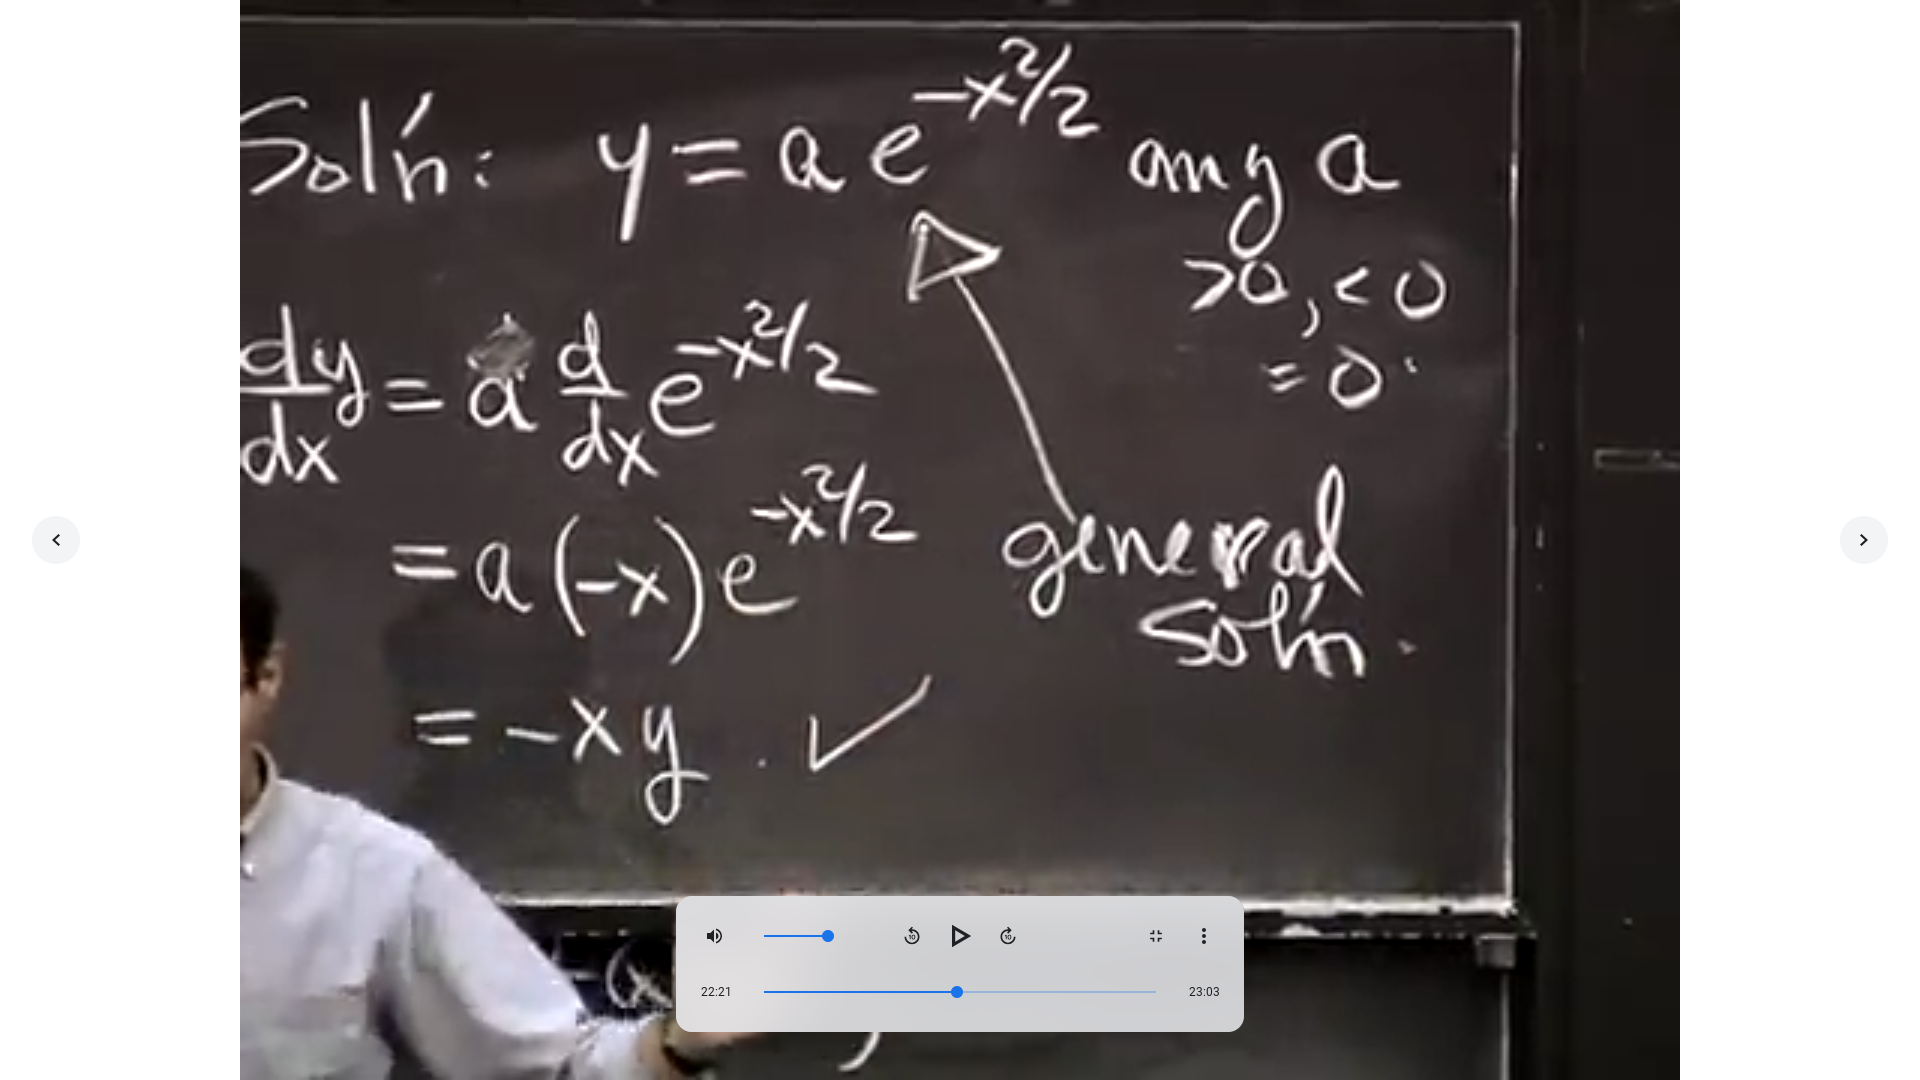 Sol'n: y = a e^{-x^2/2} any a
>0, <0
= 0.
dy/dx = a d/dx e^{-x^2/2}
= a (-x) e^{-x^2/2}
= -xy. ✓
general
sol'n.
10 10
22:21 23:03